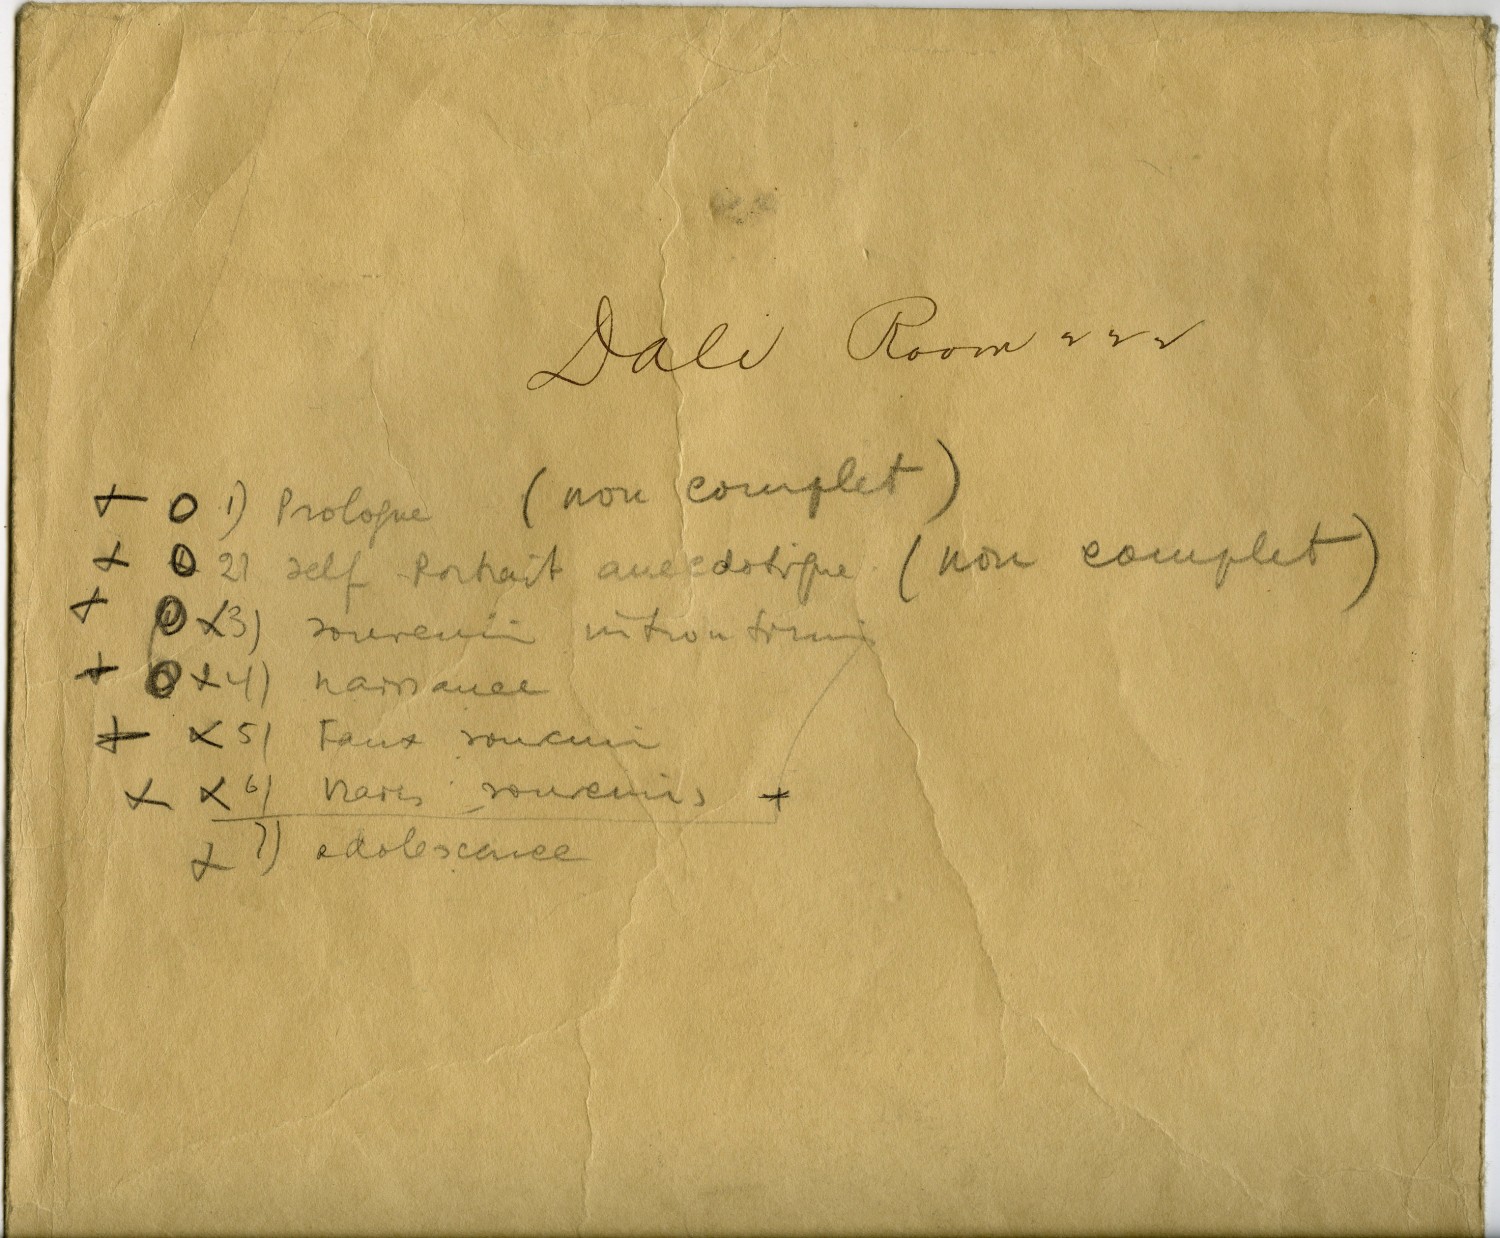 Dali Room 222
+ O 1) Prologue (non complet)
+ O 2) self Portrait anecdotique (non complet)
+ O x 3) souvenir intrauterini
+ O + 4) naissance
+ x 5) Faux souvenir
x x 6) vrais souvenirs +
x 7) adolescence